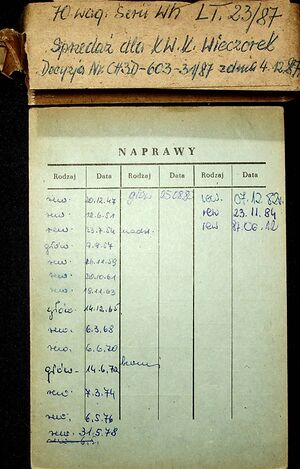 70 wag. Serii Wh LT. 23/87
Sprzedaż dla KW.K. Wieczorek
Decyzja Nr. CH3D-603-31/87 z dnia 4.12.87
NAPRAWY
Rodzaj Data Rodzaj Data Rodzaj Data
rew. 20.12.47 głów 25.08.80 rew. 07.12.82r.
rew. 12.6.51 rew 23.11.84
rew. 23.7.54 nadz. rew 87.06.12
głów. 7.9.57
rew. 26.11.59
rew. 20.10.61
rew. 18.11.63
głów. 14.12.65
rew. 6.3.68
rew. 6.6.70
głów. 14.6.72
rew. 7.3.74
rew. 6.5.76
rew. 31.5.78